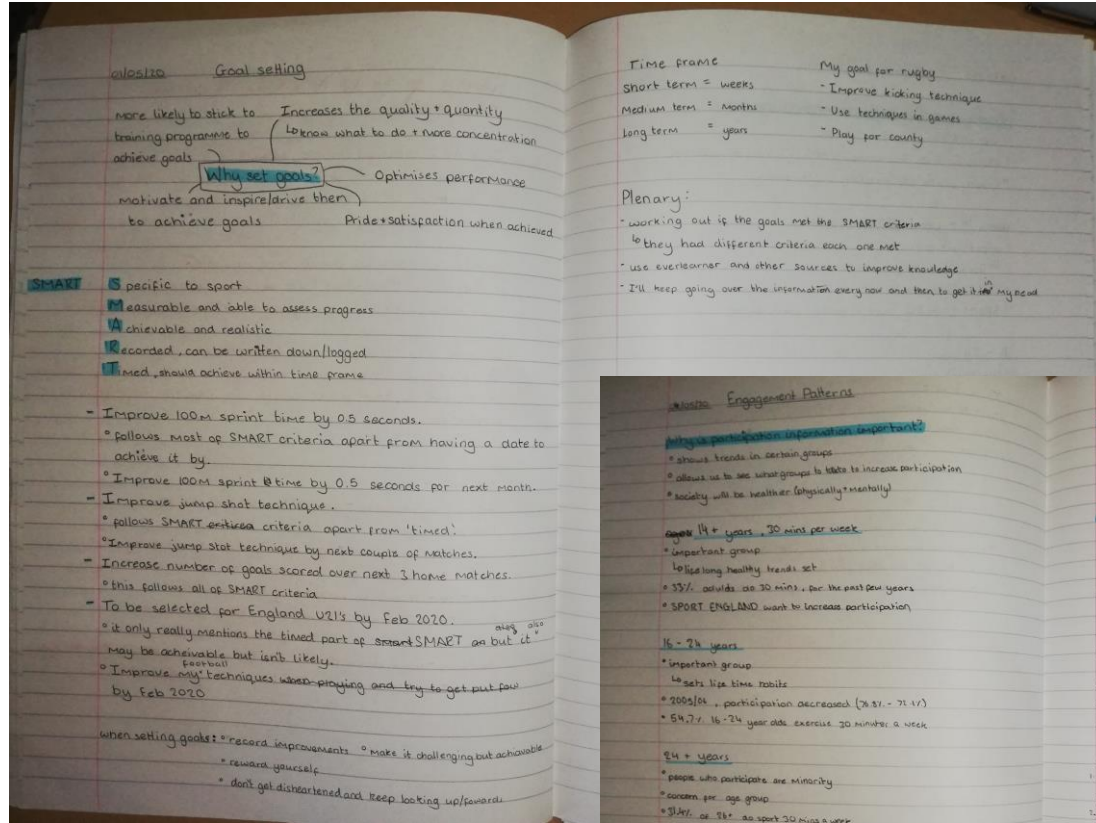 01/05/20 Goal setting
more likely to stick to
training programme to
achieve goals
Increases the quality + quantity
↳ know what to do + more concentration
Why set goals?
Optimises performance
motivate and inspire/drive them
to achieve goals
Pride + satisfaction when achieved
SMART
Specific to sport
Measurable and able to assess progress
Achievable and realistic
Recorded, can be written down/logged
Timed, should achieve within time frame
- Improve 100m sprint time by 0.5 seconds.
° follows most of SMART criteria apart from having a date to
achieve it by.
° Improve 100m sprint time by 0.5 seconds for next month.
- Improve jump shot technique.
° follows SMART criteria apart from 'timed'.
° Improve jump stot technique by next couple of matches.
- Increase number of goals scored over next 3 home matches.
° this follows all of SMART criteria
- To be selected for England U21's by Feb 2020.
° it only really mentions the timed part of SMART but it also
may be acheivable but isn't likely.
° Improve my football techniques when playing and try to get put for
by Feb 2020
when setting goals: ° record improvements ° make it challenging but achievable
° reward yourself
° don't get disheartened and keep looking up/forward
Time frame
Short term = weeks
Medium term = months
Long term = years
My goal for rugby
- Improve kicking technique
- Use techniques in games
- Play for county
Plenary:
- working out if the goals met the SMART criteria
↳ they had different criteria each one met
- use everlearner and other sources to improve knowledge
- I'll keep going over the information every now and then to get it in my head
Engagement Patterns
Why is participation information important?
° shows trends in certain groups
° allows us to see what groups to to increase participation
° society will be healthier (physically + mentally)
14+ years, 30 mins per week
° important group
↳ life long healthy trends set
° adults do 30 mins, for the past few years
° SPORT ENGLAND want to increase participation
16 - 24 years
° important group
↳ sets life time habits
° 2005/06, participation decreased
° 54.7% 16-24 year olds exercise 30 minutes a week
24+ years
° people who participate are minority
° concern for age group
° of do sport 30 mins a week